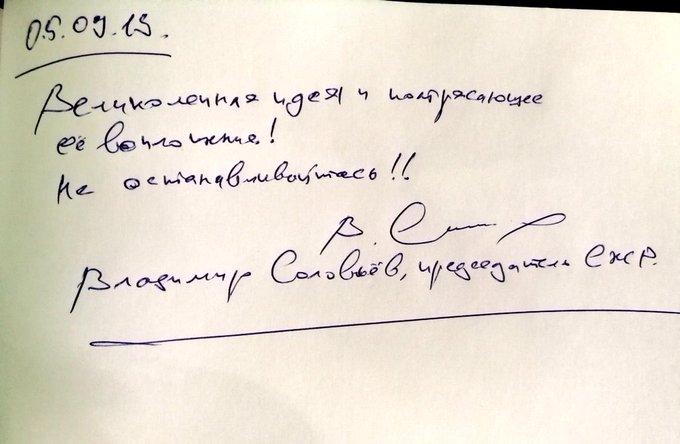 05.09.19.
Великолепная идея и потрясающее
её воплощение!
Не останавливайтесь!!
В.
Владимир Соловьёв, председатель СЖР.